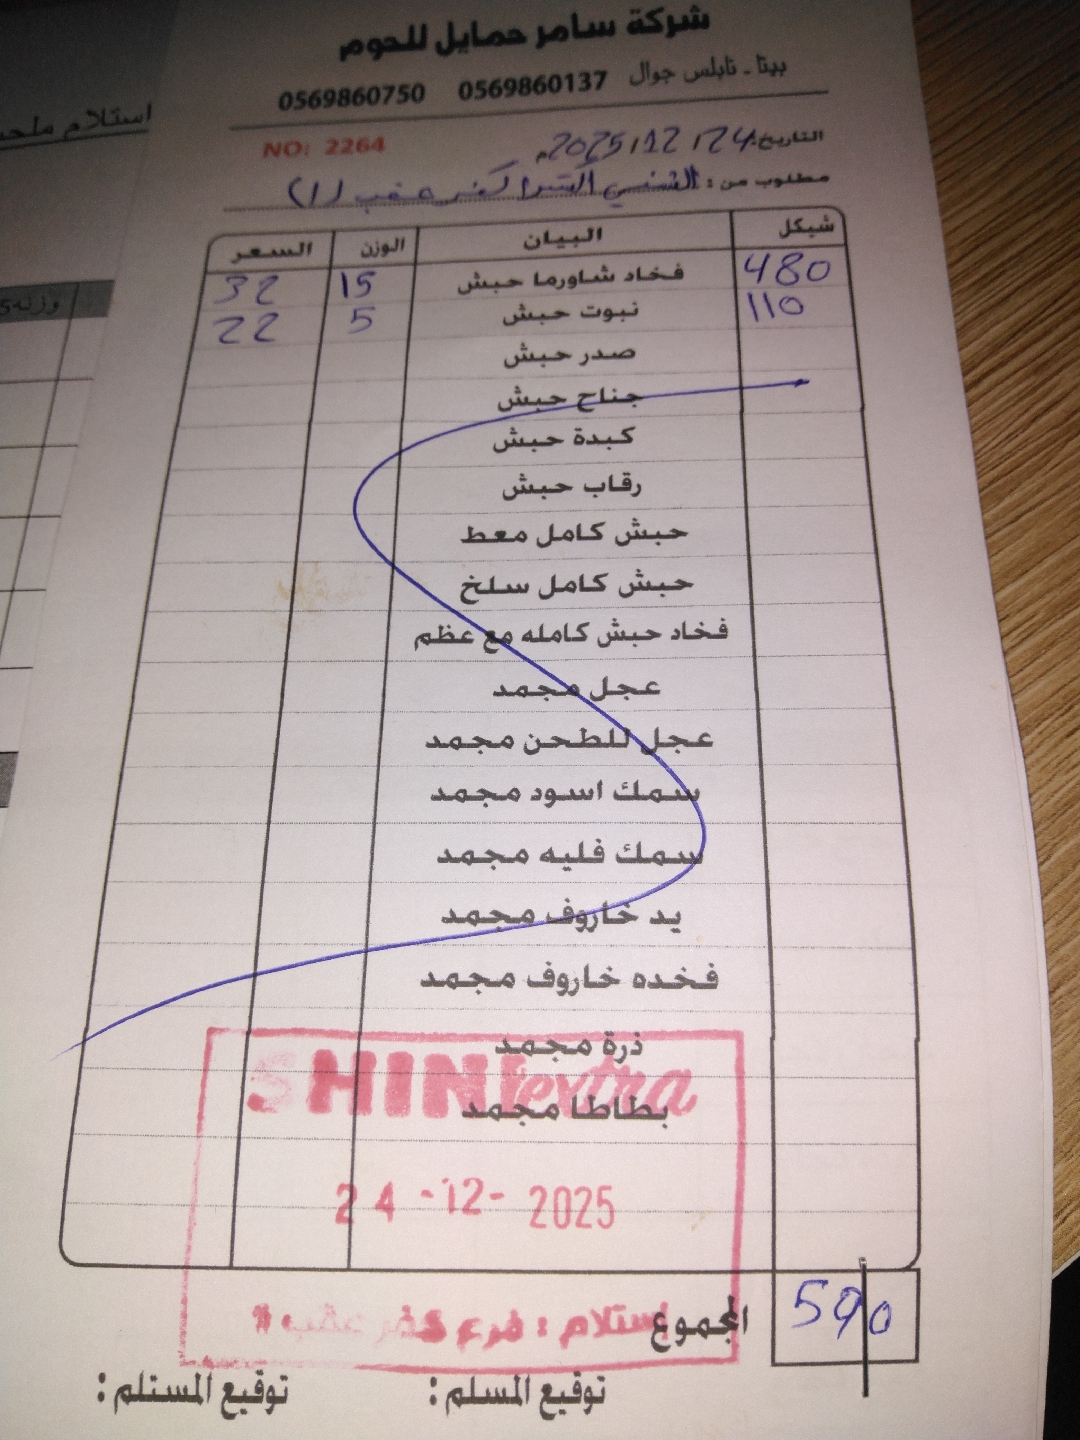 شركة سامر حمايل للحوم
بيتا - نابلس جوال 0569860137 0569860750
استلام
NO: 2264
التاريخ: 2025/12/24م
مطلوب من: الشني اكسترا كفر عقب (1)
شيكل البيان الوزن السعر
480 فخاد شاورما حبش 15 32
110 نبوت حبش 5 22
صدر حبش
جناح حبش
كبدة حبش
رقاب حبش
حبش كامل معط
حبش كامل سلخ
فخاد حبش كامله مع عظم
عجل مجمد
عجل للطحن مجمد
سمك اسود مجمد
سمك فليه مجمد
يد خاروف مجمد
فخده خاروف مجمد
ذرة مجمد
SHINI extra
بطاطا مجمد
24 -12- 2025
المجموع 590
إستلام : فرع كفر عقب
توقيع المسلم : توقيع المستلم :